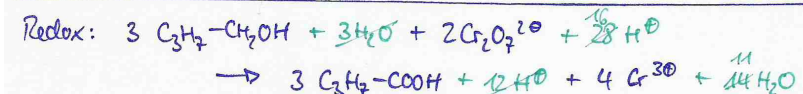 Redox: 3 C₃H₇-CH₂OH + 3H₂O + 2Cr₂O₇²⊖ + 28 16 H⊕
→ 3 C₃H₇-COOH + 12 H⊕ + 4 Cr³⊕ + 14 11 H₂O